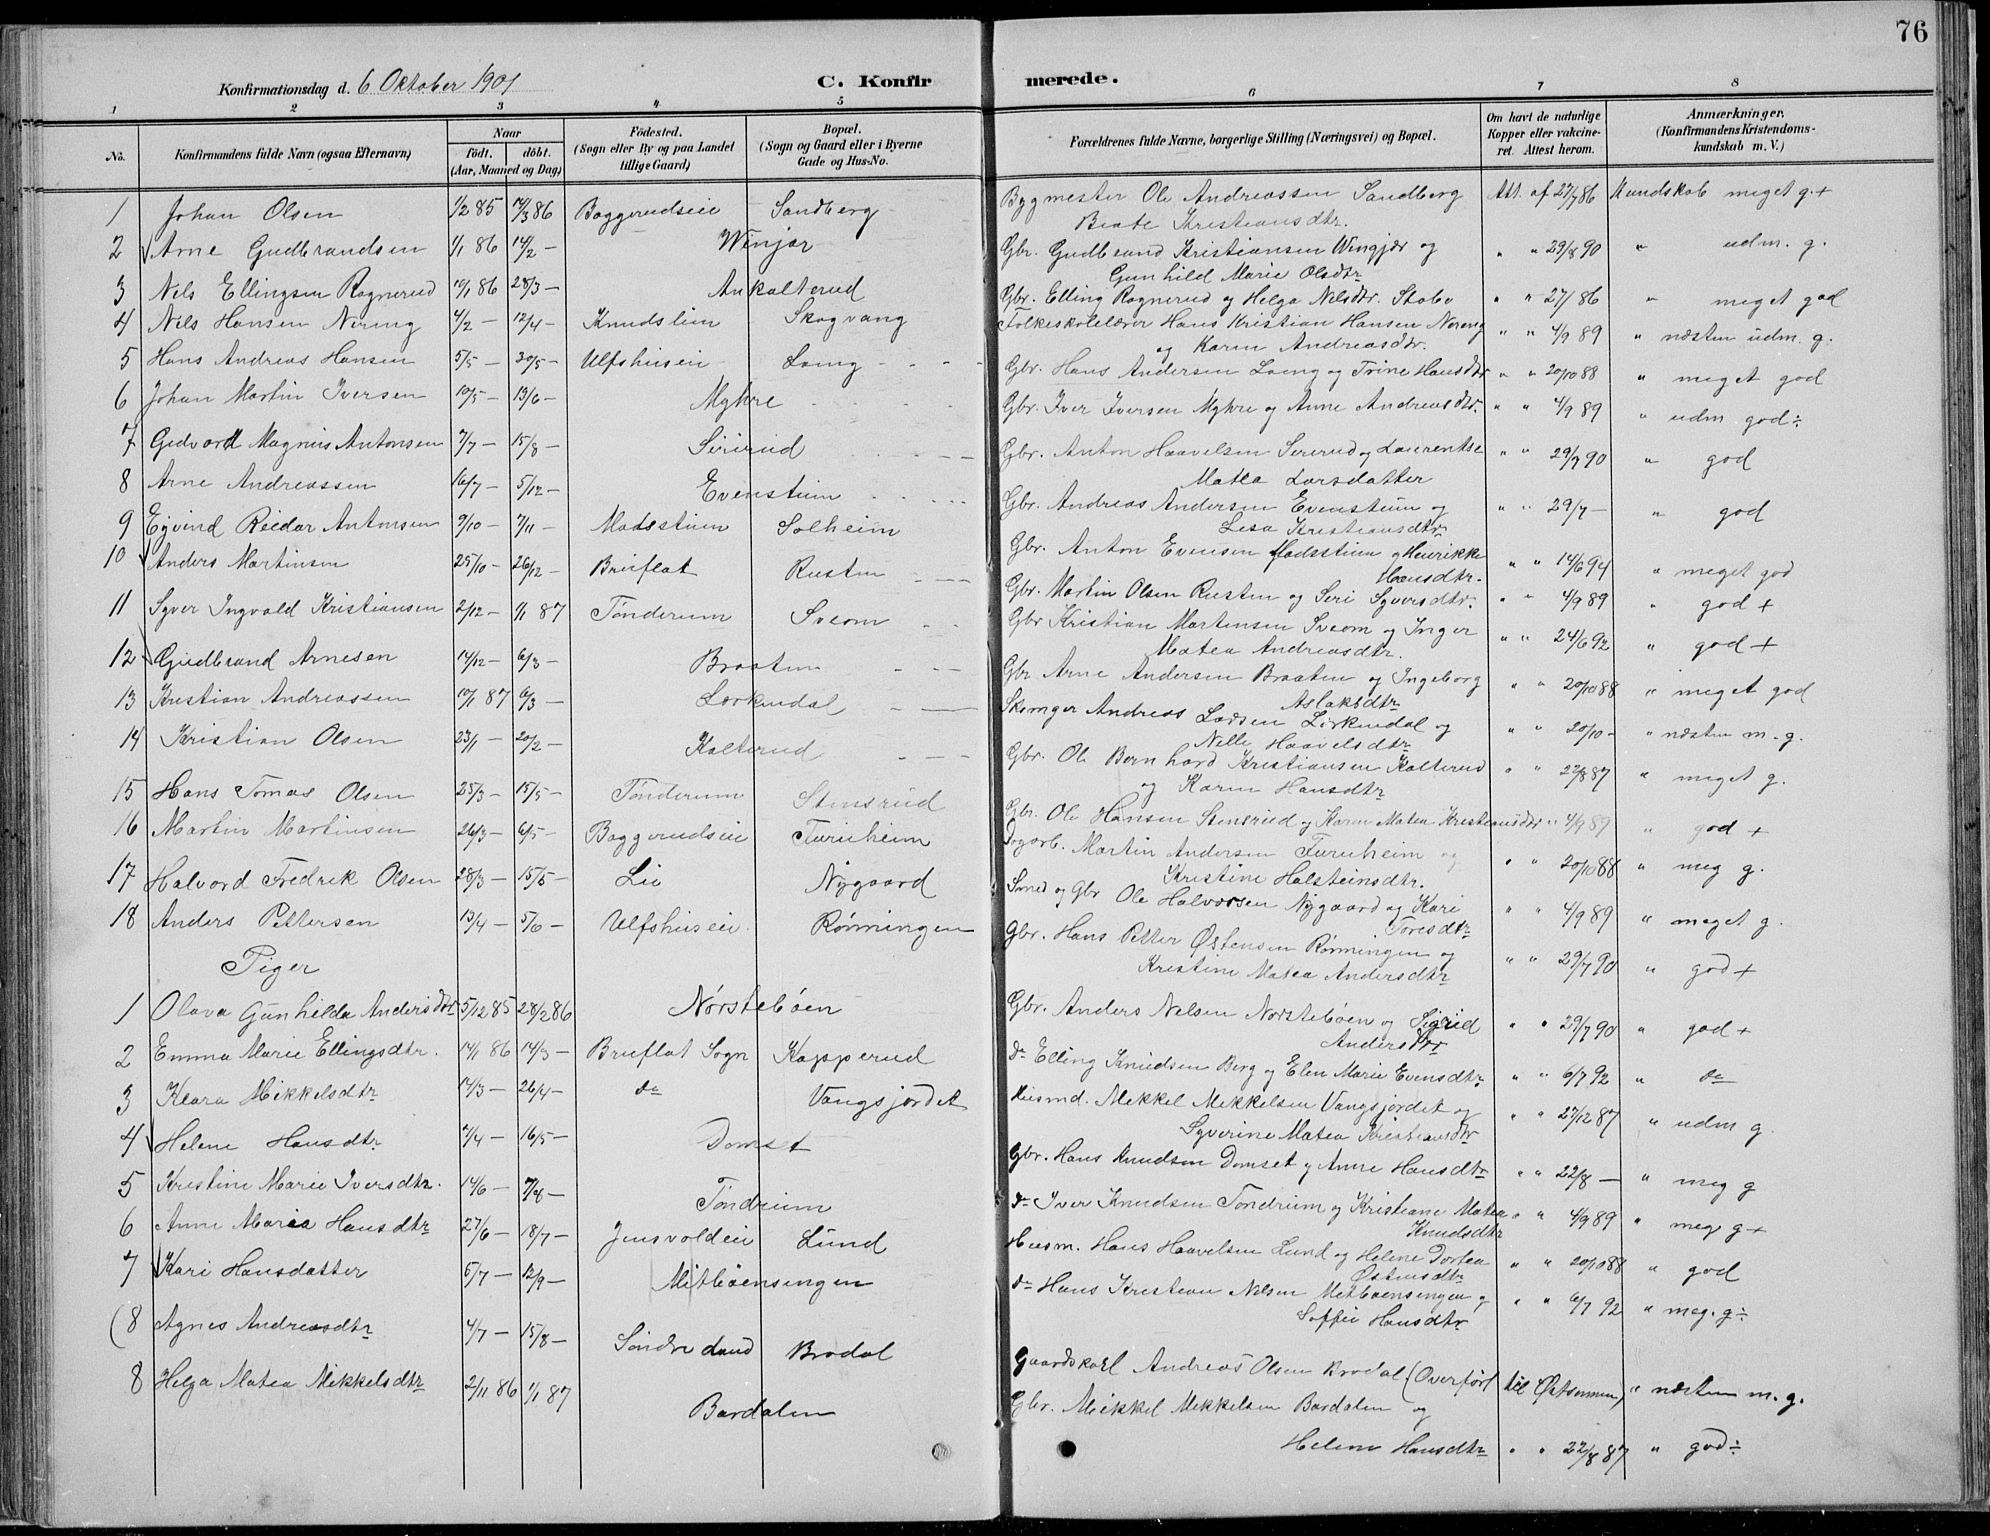 76
Konfirmationsdag d. 6 Oktober 1901 C. Konfirmerede.
1 2 3 4 5 6 7 8
No. Konfirmandens fulde Navn (ogsaa Efternavn) Naar født. døbt. (Aar, Maaned og Dag) Fødested. (Sogn eller By og paa Landet tillige Gaard) Bopæl. (Sogn og Gaard eller i Byerne Gade og Hus-No. Forældrenes fulde Navne, borgerlige Stilling (Næringsvei) og Bopæl. Om havt de naturlige Kopper eller vakcineret. Attest herom. Anmærkninger. (Konfirmandens Kristendomskundskab m. V.)
1 Johan Olsen 1/2 85 7/3 86 Baggerudseie Sandberg Bygmester Ole Andreassen Sandberg Att. af 27/7 86 Kundskab meget g. +
Beate Kristiansdtr.
2 Arne Gudbrandsen 1/1 86 14/2 — Winjar Gbr. Gudbrand Kristiansen Wingjær og " " 29/8 90 " udm. g.
Gunhild Marie Olsdtr
3 Nils Ellingsen Rognerud 10/1 86 28/3 — Ankalterud Gbr. Elling Rognerud og Helga Nilsdtr. Stabo " " 27/ 86 " meget god
4 Nils Hansen Nering 4/2 — 12/4 — Knudslien Skogvang Folkeskolelærer Hans Kristian Hansen Nereng " " 4/9 89 " næsten udm. g.
og Karen Andreasdtr.
5 Hans Andreas Hansen 5/5 — 30/5 — Ulfshuseie Laeng Gbr. Hans Andersen Laeng og Trine Hansdtr " " 20/10 88 " meget god
6 Johan Martin Iversen 10/5 — 13/6 — Myhre Gbr. Iver Iversen Myhre og Anne Andreasdtr. " " 4/9 89 " udm god ÷
7 Gedvard Magnus Antonsen 7/7 — 15/8 — Seierud Gbr. Anton Haavelsen Seierud og Laurentse " " 29/7 90 " god
Matea Larsdatter
8 Arne Andreassen 16/7 — 5/12 — Evenstuen Gbr. Andreas Andersen Evenstuen og " " 29/7 — " god
Lisa Kristiansdtr
9 Ejvind Reidar Antonsen 9/10 — 7/11 — Madsstuen Solheim Gbr. Anton Evensen Madsstuen og Henrikke " " 14/6 94 " meget god
Hansdtr.
10 Anders Martinsen 25/10 — 26/12 — Bruflat Rusten Gbr. Martin Olsen Rusten og Siri Syversdtr. " " 4/9 89 " god +
11 Syver Ingvald Kristiansen 2/12 — 1/1 87 Tønderum Sveom Gbr Kristian Martensen Sveom og Inger " " 24/6 92 " god +
Matea Andreasdtr.
12 Gudbrand Arnesen 14/12 — 6/3 — Braaten Gbr Arne Andersen Braaten og Ingeborg " " 20/10 88 " meget god
Aslaksdtr
13 Kristian Andreassen 10/1 87 6/3 — Lærkendal Andreas Larsen Lærkendal og " " 20/10 — " næsten m. g.
Nelle Haavelsdtr
14 Kristian Olsen 23/1 — 20/2 — Kalterud Gbr. Ole Bernhard Kristiansen Kalterud " " 22/8 87 " meget g.
og Karen Hansdtr
15 Hans Tomas Olsen 25/3 — 15/5 — Tønderum Stensrud Gbr. Ole Hansen Stensrud og Karen Matea Kristiansdtr " 4/9 89 " god +
16 Martin Martinsen 26/3 — 6/5 — Baggerudseie Furuheim Dagarb. Martin Andersen Furuheim og " " 20/10 88 " meg g.
Kristine Halsteinsdtr.
17 Halvord Fredrik Olsen 28/3 — 15/5 — Lie Nygaard Smed og Gbr Ole Halvorsen Nygaard og Kari " " 4/9 89 " meget g.
Toresdtr
18 Anders Pettersen 13/4 — 5/6 — Ulfshuseie Rønningen Gbr. Hans Petter Østensen Rønningen og " " 29/7 90 " god +
Kristine Matea Andersdtr
Piger
1 Olava Gunhilda Andersdtr 5/12 85 28/2 86 Nørstebøen Gbr. Anders Nelsen Nørstebøen og Sigrid " " 29/7 90 " god +
Andersdtr
2 Emma Marie Ellingsdtr. 14/1 86 14/3 — Bruflat Sogn Kapperud do Elling Knudsen Berg og Elen Marie Evensdtr " " 6/7 92 " do
3 Klara Mikkelsdtr 14/3 — 26/4 — do Vangsjordet Husmd. Mekkel Mekkelsen Vangsjordet og " " 27/12 87 " udm g.
Syverine Matea Kristiansdtr
4 Helene Hansdtr 7/4 — 16/5 — Domset Gbr. Hans Knudsen Domset og Anne Hansdtr " " 22/8 — " meg g
5 Kristine Marie Iversdtr. 14/6 — 7/8 — Tøndrum do Iver Knudsen Tøndrum og Kristiane Matea " " 4/9 89 " meg g +
Knudsdtr
6 Anne Maria Hansdtr 27/6 — 18/7 — Jensvoldeie Lund Husm. Hans Haavelsen Lund og Helene Dortea " " 20/10 88 " god
Østensdtr
7 Kari Hansdatter 5/7 — 12/9 — Mitbøensengen do Hans Kristian Nelsen Mitbøensengen og " " 6/7 92 " meg. g ÷
Soffie Hansdtr
(8 Agnes Andreasdtr 4/7 — 15/8 — Søndre Land Brodal Gaardskarl Andreas Olsen Brodal (Overført til Østsinnen) " næsten m. g.
8 Helga Matea Mikkelsdtr 2/11 86 1/1 87 Bardalen Gbr. Mikkel Mekkelsen Bardalen og
Helene Hansdtr " " 22/8 87 " god ÷